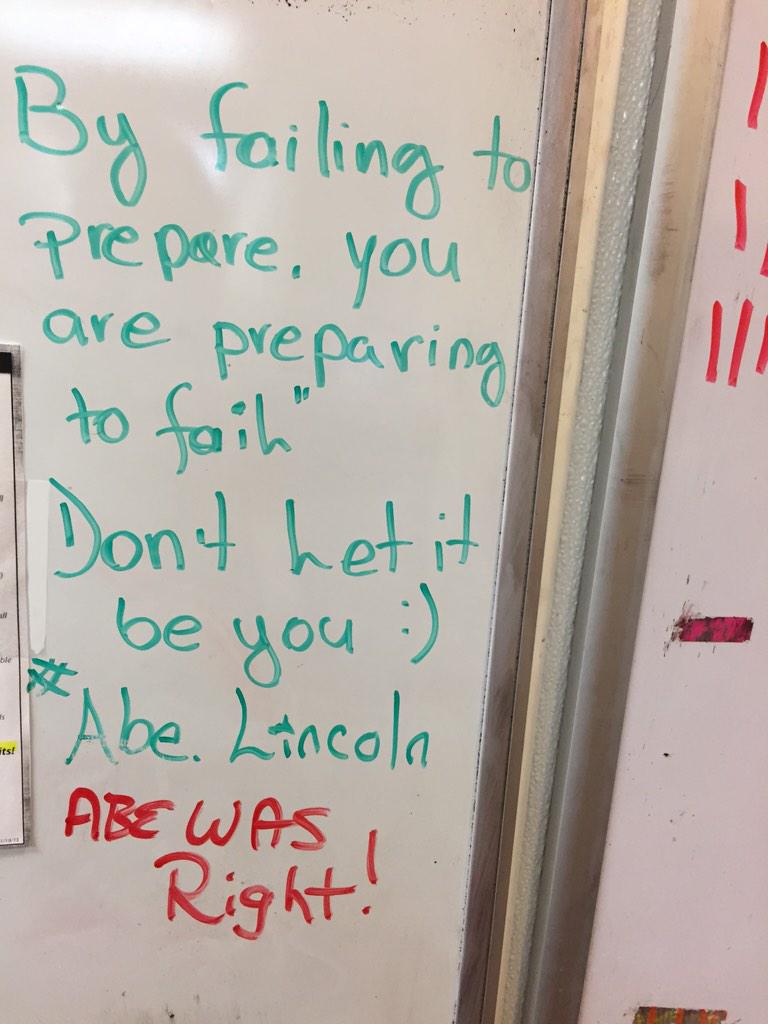 By failing to
Prepare. you
are preparing
to fail"
Don't Let it
be you :)
# Abe. Lincoln
ABE WAS
Right!
its!